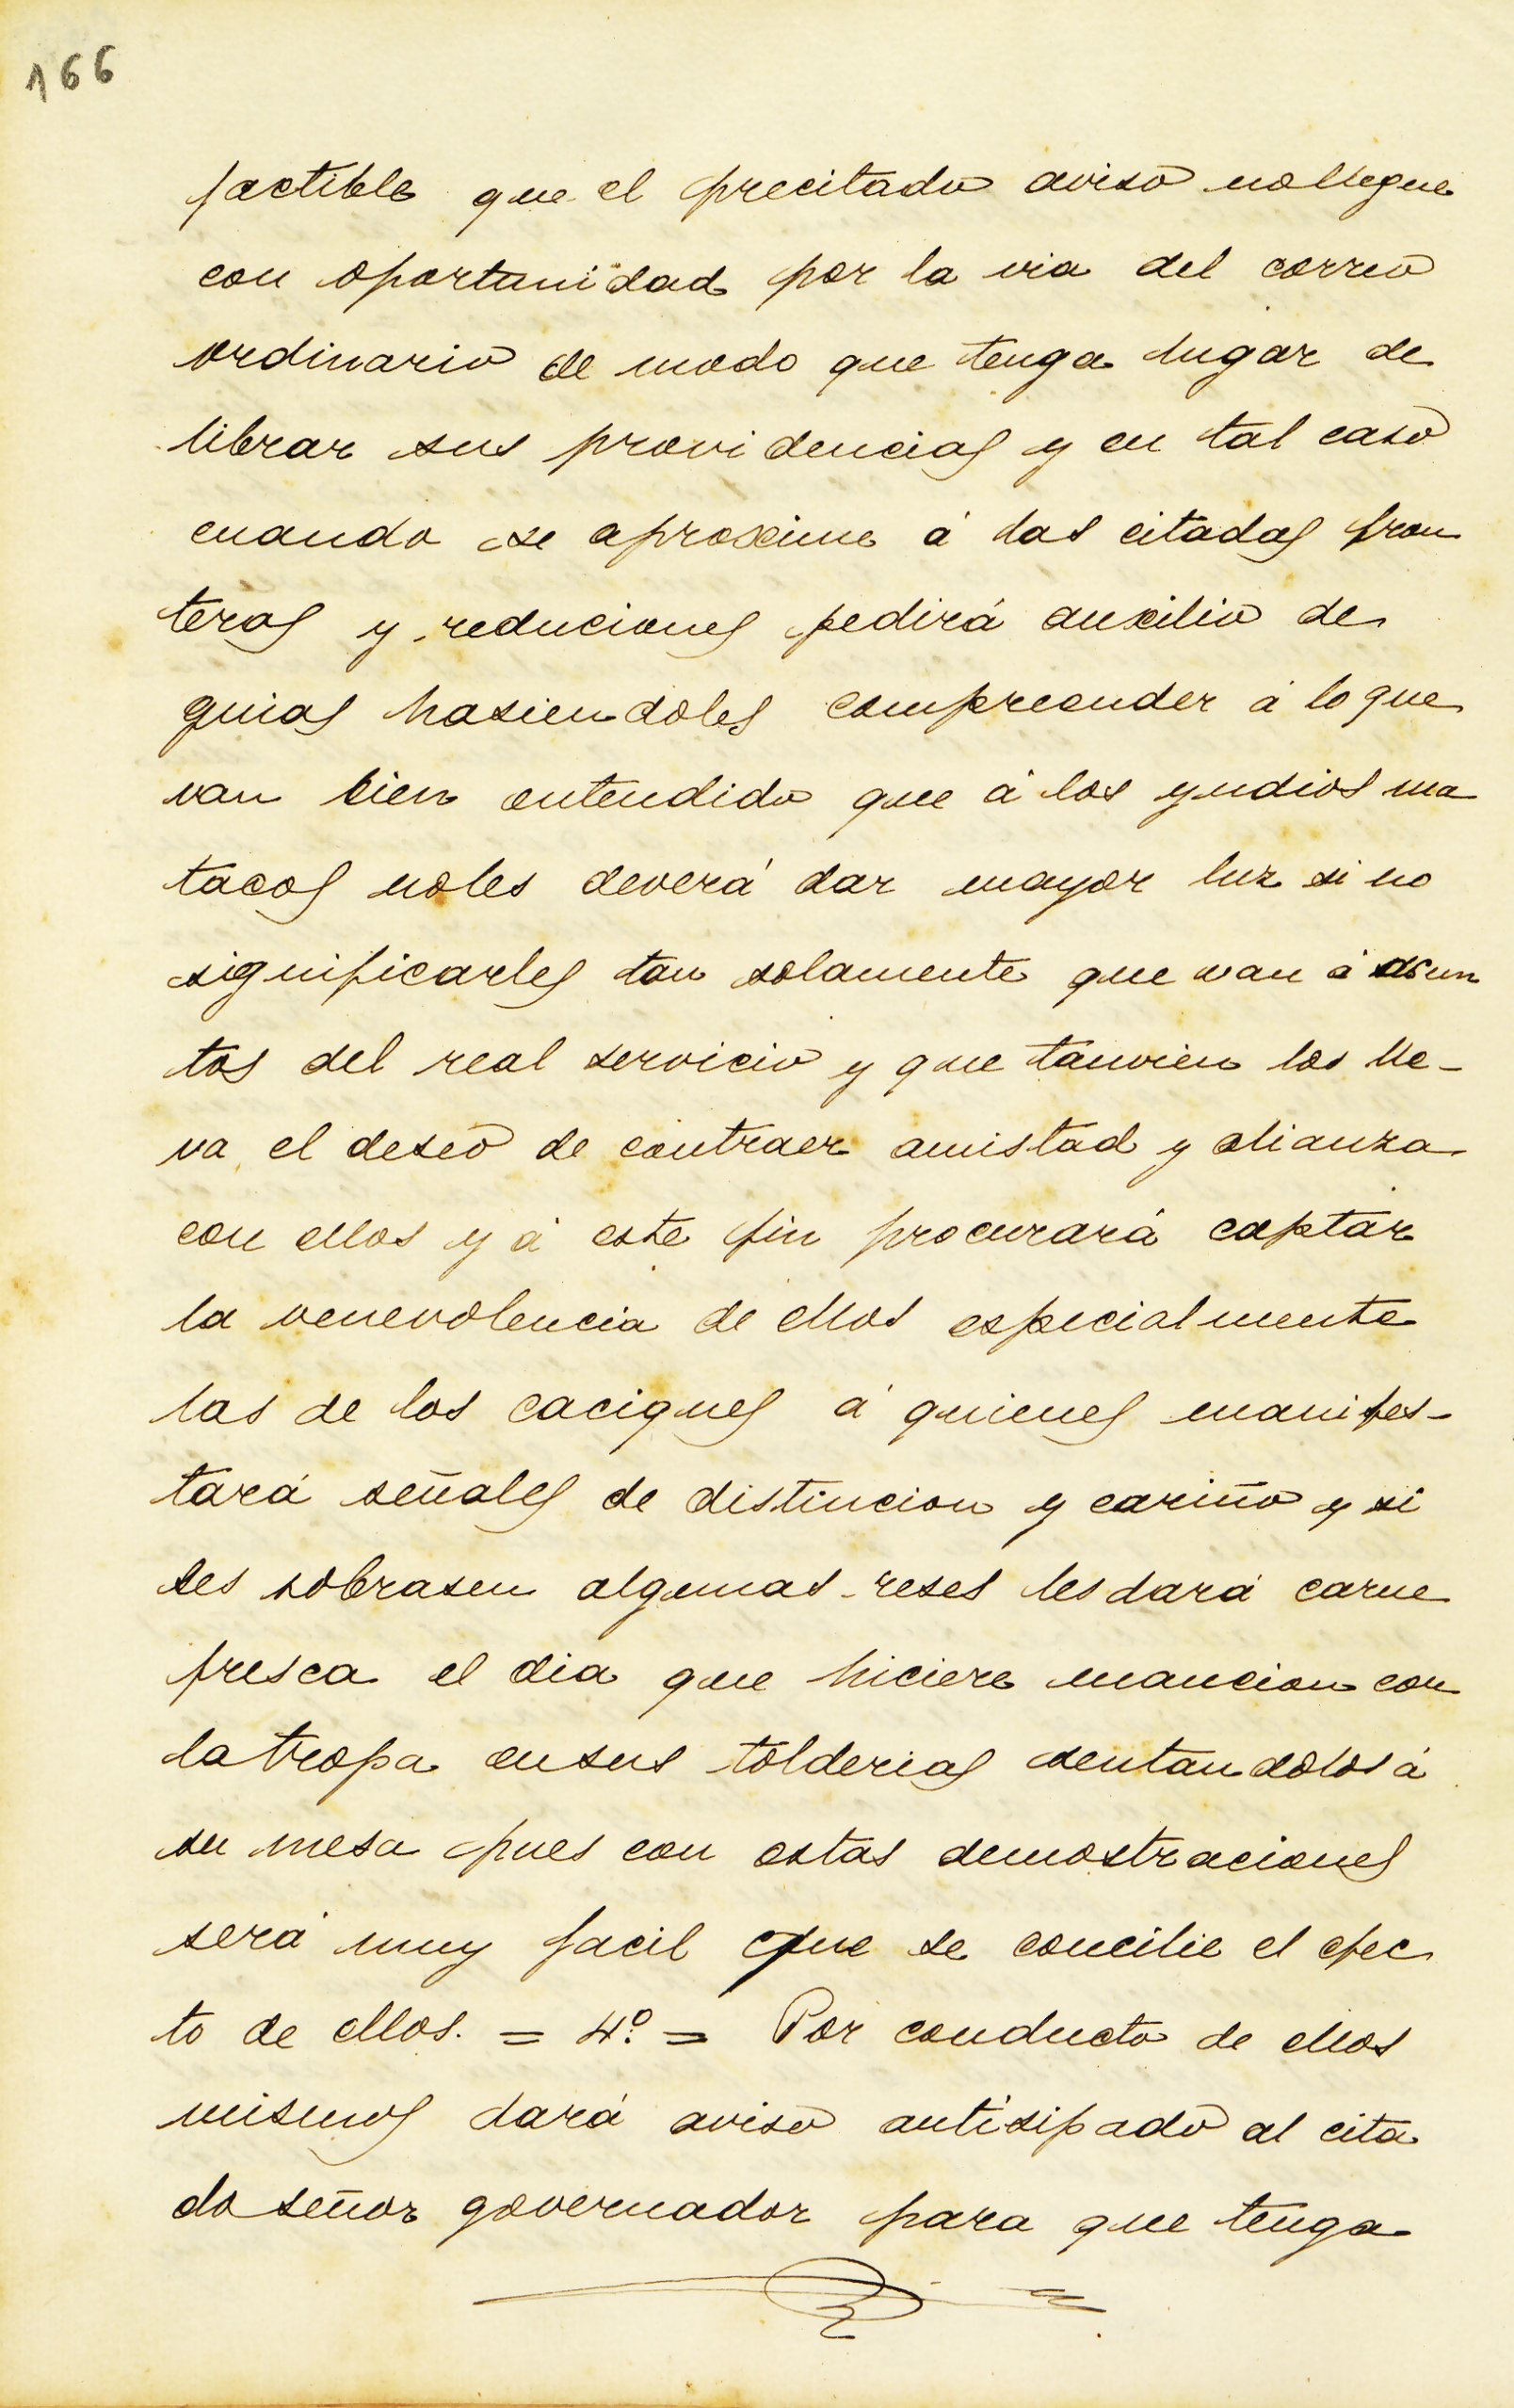 166
factible que el precitado aviso nollegue
con oportunidad por la via del correo
ordinario de modo que tenga lugar de
librar sus providencias y en tal caso
cuando se aproxime á las citadas fron
teras y reduciones pedirá auxilio de
guias hasiendoles compreender á lo que
van bien entendido que á los yndios ma
tacos noles deverá dar mayor luz si no
significarles tan solamente que van á asun
tos del real servicio y que tanvien los lle-
va el deseo de contraer amistad y alianza
con ellos y á este fin procurará captar
la venevolencia de ellos especialmente
las de los caciques á quienes manifes-
tará señales de distincion y cariño y si
les sobrasen algunas reses les dará carne
fresca el dia que hiciere mancion con
la tropa ensus tolderias sentandolos á
su mesa pues con estas demostraciones
será muy facil que se concilie el efec
to de ellos. = 4º = Por conducto de ellos
mismos dará aviso antisipado al cita
do señor governador para que tenga